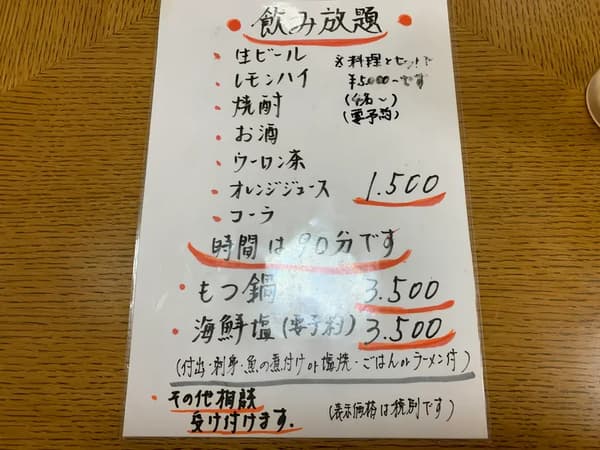 飲み放題
生ビール
レモンハイ
焼酎
お酒
ウーロン茶
オレンジジュース
コーラ
※料理とセットで
¥5,000〜です
(4名〜)
(要予約)
1.500
時間は90分です
もつ鍋 3.500
海鮮塩(要予約) 3.500
(付出・刺身・魚の煮付けor塩焼・ごはんorラーメン付)
その他相談
受け付けます.
(表示価格は税別です)